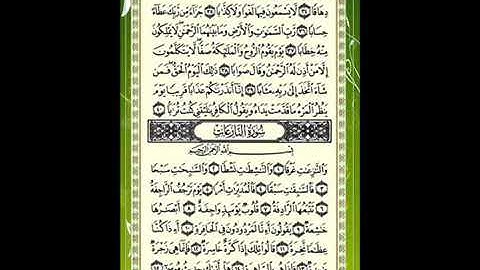 دِهَاقًا ٣٤ لَّا يَسْمَعُونَ فِيهَا لَغْوًا وَلَا كِذَّٰبًا ٣٥ جَزَآءً مِّن رَّبِّكَ عَطَآءً
حِسَابًا ٣٦ رَّبِّ السَّمَٰوَٰتِ وَالْأَرْضِ وَمَا بَيْنَهُمَا الرَّحْمَٰنِ لَا يَمْلِكُونَ
مِنْهُ خِطَابًا ٣٧ يَوْمَ يَقُومُ الرُّوحُ وَالْمَلَٰٓئِكَةُ صَفًّا لَّا يَتَكَلَّمُونَ
إِلَّا مَنْ أَذِنَ لَهُ الرَّحْمَٰنُ وَقَالَ صَوَابًا ٣٨ ذَٰلِكَ الْيَوْمُ الْحَقُّ فَمَن
شَآءَ اتَّخَذَ إِلَىٰ رَبِّهِ مَـَٔابًا ٣٩ إِنَّآ أَنذَرْنَٰكُمْ عَذَابًا قَرِيبًا يَوْمَ
يَنظُرُ الْمَرْءُ مَا قَدَّمَتْ يَدَاهُ وَيَقُولُ الْكَافِرُ يَٰلَيْتَنِي كُنتُ تُرَٰبًا ٤٠
سُورَةُ النَّازِعَاتِ
بِسْمِ اللَّهِ الرَّحْمَٰنِ الرَّحِيمِ
وَالنَّٰزِعَٰتِ غَرْقًا ١ وَالنَّٰشِطَٰتِ نَشْطًا ٢ وَالسَّٰبِحَٰتِ سَبْحًا
٣ فَالسَّٰبِقَٰتِ سَبْقًا ٤ فَالْمُدَبِّرَٰتِ أَمْرًا ٥ يَوْمَ تَرْجُفُ الرَّاجِفَةُ
٦ تَتْبَعُهَا الرَّادِفَةُ ٧ قُلُوبٌ يَوْمَئِذٍ وَاجِفَةٌ ٨ أَبْصَٰرُهَا
خَٰشِعَةٌ ٩ يَقُولُونَ أَءِنَّا لَمَرْدُودُونَ فِي الْحَافِرَةِ ١٠ أَءِذَا كُنَّا
عِظَٰمًا نَّخِرَةً ١١ قَالُوا تِلْكَ إِذًا كَرَّةٌ خَاسِرَةٌ ١٢ فَإِنَّمَا هِيَ زَجْرَةٌ